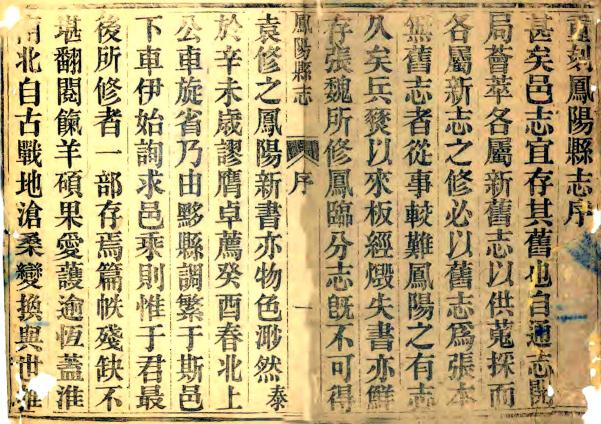 重刻鳳陽縣志序
甚矣邑志宜存其舊也自通志開
局薈萃各屬新舊志以供蒐採而
各屬新志之修必以舊志爲張本
無舊志者從事較難鳳陽之有志
久矣兵燹以來板經燬失書亦鮮
存張魏所修鳳臨分志旣不可得
鳳陽縣志 序 一
袁修之鳳陽新書亦物色渺然泰
於辛未歲謬膺卓薦癸酉春北上
公車旋省乃由黟縣調繁于斯邑
下車伊始詢求邑乘則惟于君最
後所修者一部存焉篇帙殘缺不
堪翻閱餼羊碩果愛護逾恆蓋淮
南北自古戰地滄桑變換與世推